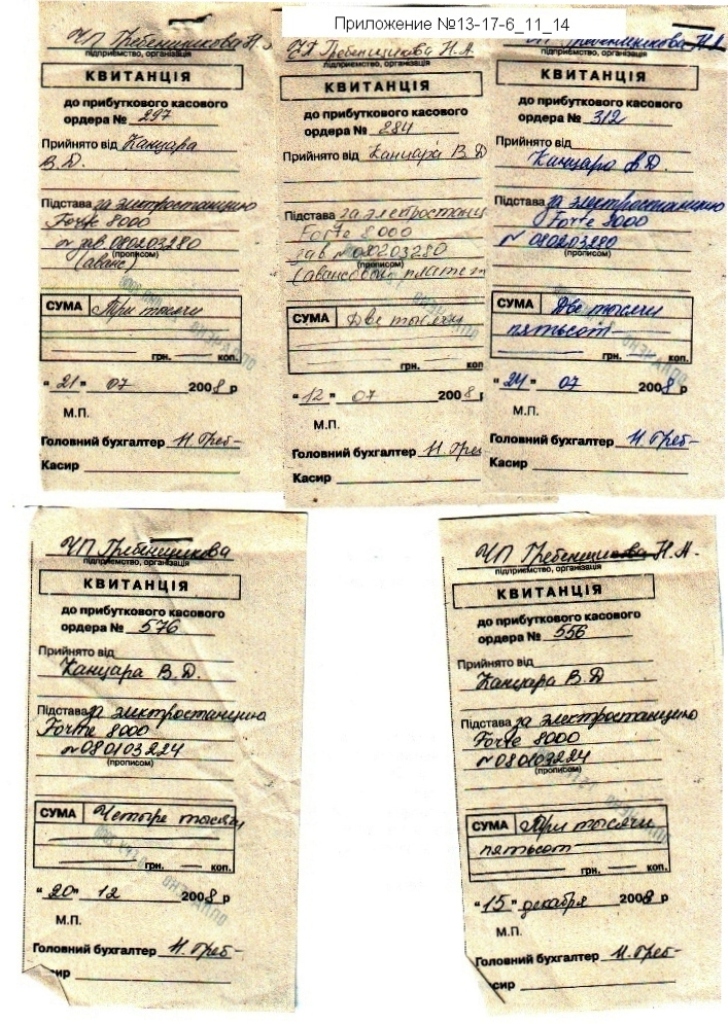 Приложение №13-17-6_11_14
ЧП Гребенщикова Н.
підприємство, організація
КВИТАНЦІЯ
до прибуткового касового
ордера № 297
Прийнято від Канцара
В.Д.
Підстава за электростанцию
Forte 8000
№ зав. 080203280
(прописом)
(аванс)
СУМА Три тысячи
грн. коп.
"21" 07 2008 р
М.П.
Головний бухгалтер Н. Греб-
Касир
ЧП Гребенщикова Н.А.
підприємство, організація
КВИТАНЦІЯ
до прибуткового касового
ордера № 284
Прийнято від Канцара В Д
Підстава за электростанц
Forte 8000
зав №080203280
(прописом)
(авансовый платеж
СУМА Две тысячи
грн. коп.
"12" 07 2008
М.П.
Головний бухгалтер Н. Греб
Касир
Гребенщикова Н.А
підприємство, організація
КВИТАНЦІЯ
до прибуткового касового
ордера № 312
Прийнято від
Канцара В Д.
Підстава за электростанцию
Forte 8000
№ 080203280
(прописом)
СУМА Две тысячи
пятьсот
грн. коп.
"24" 07 2008 р
М.П.
Головний бухгалтер Н. Греб-
Касир
ЧП Гребенщикова
підприємство, організація
КВИТАНЦІЯ
до прибуткового касового
ордера № 576
Прийнято від
Канцара В.Д.
Підстава за электростанцию
Forte 8000
№080103224
(прописом)
СУМА Четыре тысячи
грн. коп.
"20" 12 2008 р
М.П.
Головний бухгалтер Н. Греб-
ир
ЧП Гребенщикова Н.А.
підприємство, організація
КВИТАНЦІЯ
до прибуткового касового
ордера № 556
Прийнято від
Канцара В Д
Підстава за электростанцию
Forte 8000
№080103224
(прописом)
СУМА Три тысячи
пятьсот
грн. коп.
"15" декабря 2008 р
М.П.
Головний бухгалтер Н. Греб-
Касир